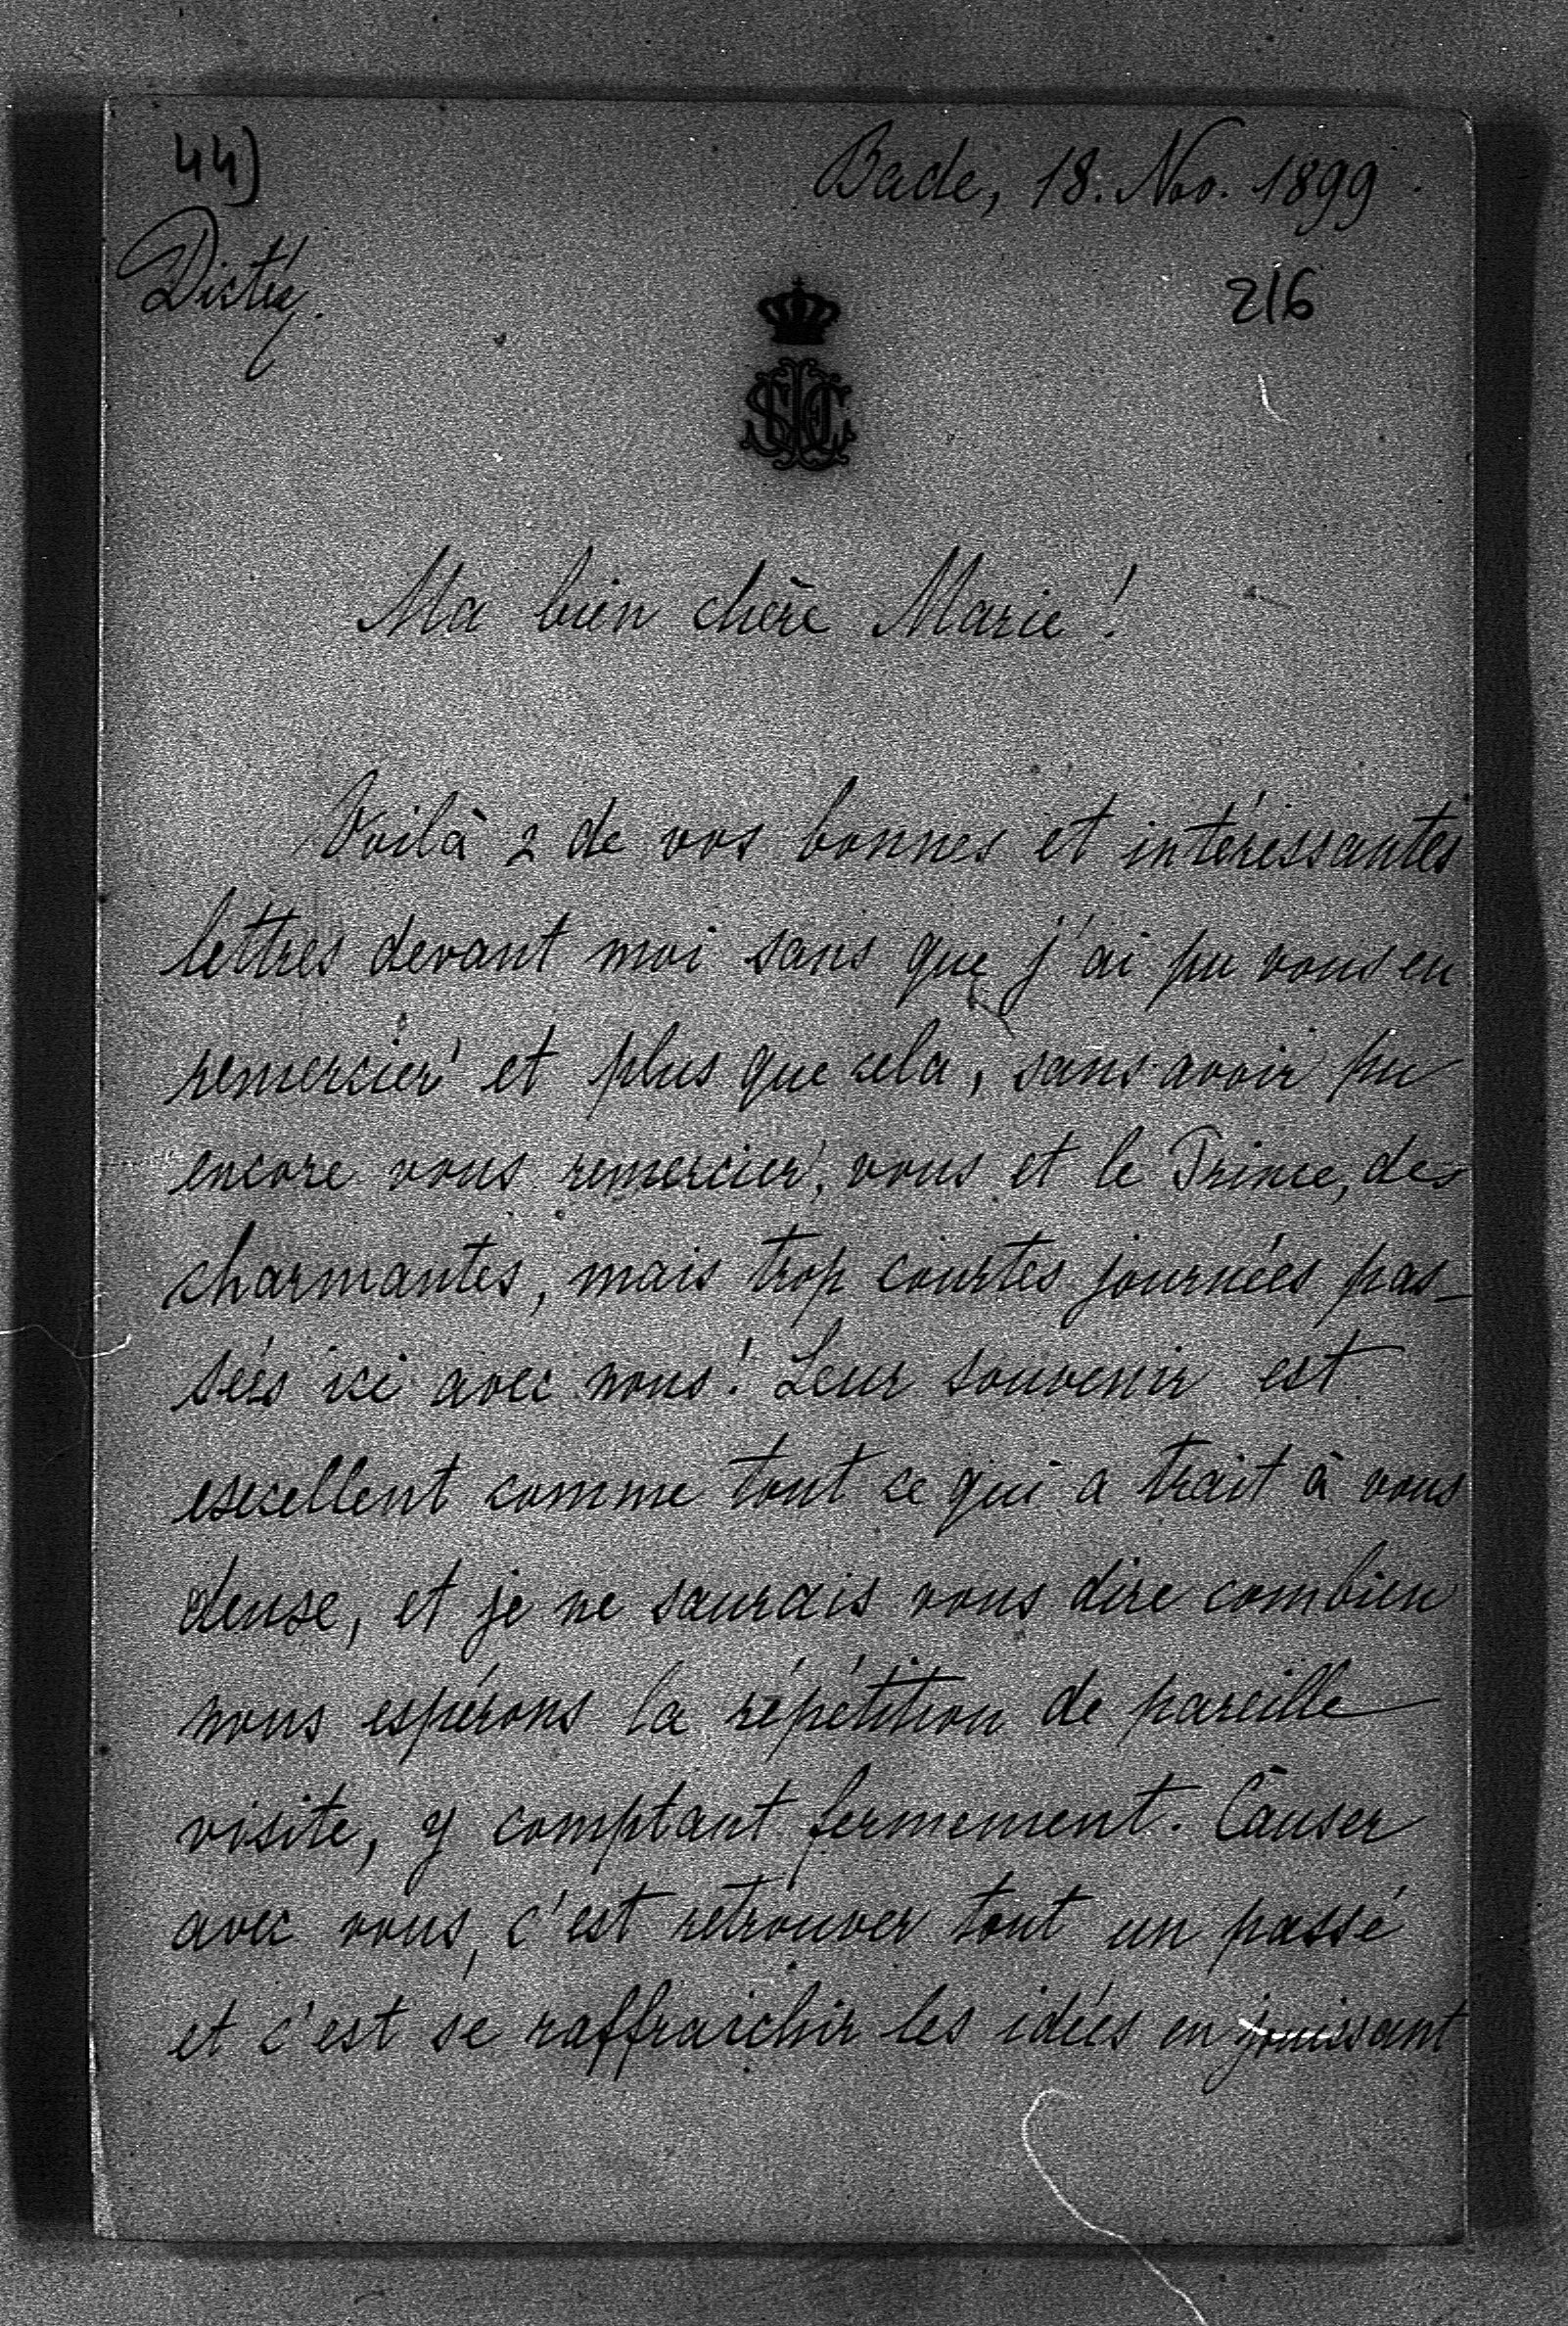 44)
Bade, 18. Nov. 1899.
Dictée.
216
Ma bien chère Marie!
Voilà 2 de vos bonnes et intéressantes
lettres devant moi sans que j'ai pu vous en
remercier et plus que cela, sans avoir pu
encore vous remercier, vous et le Prince, des
charmantes, mais trop courtes journées pas-
sées ici avec nous! Leur souvenir est
excellent comme tout ce qui a trait à vous
deuxe, et je ne saurais vous dire combien
nous espérons la répétition de pareille
visite, y comptant fermement. Causer
avec vous, c'est retrouver tout un passé
et c'est se raffraichir les idées en jouissant